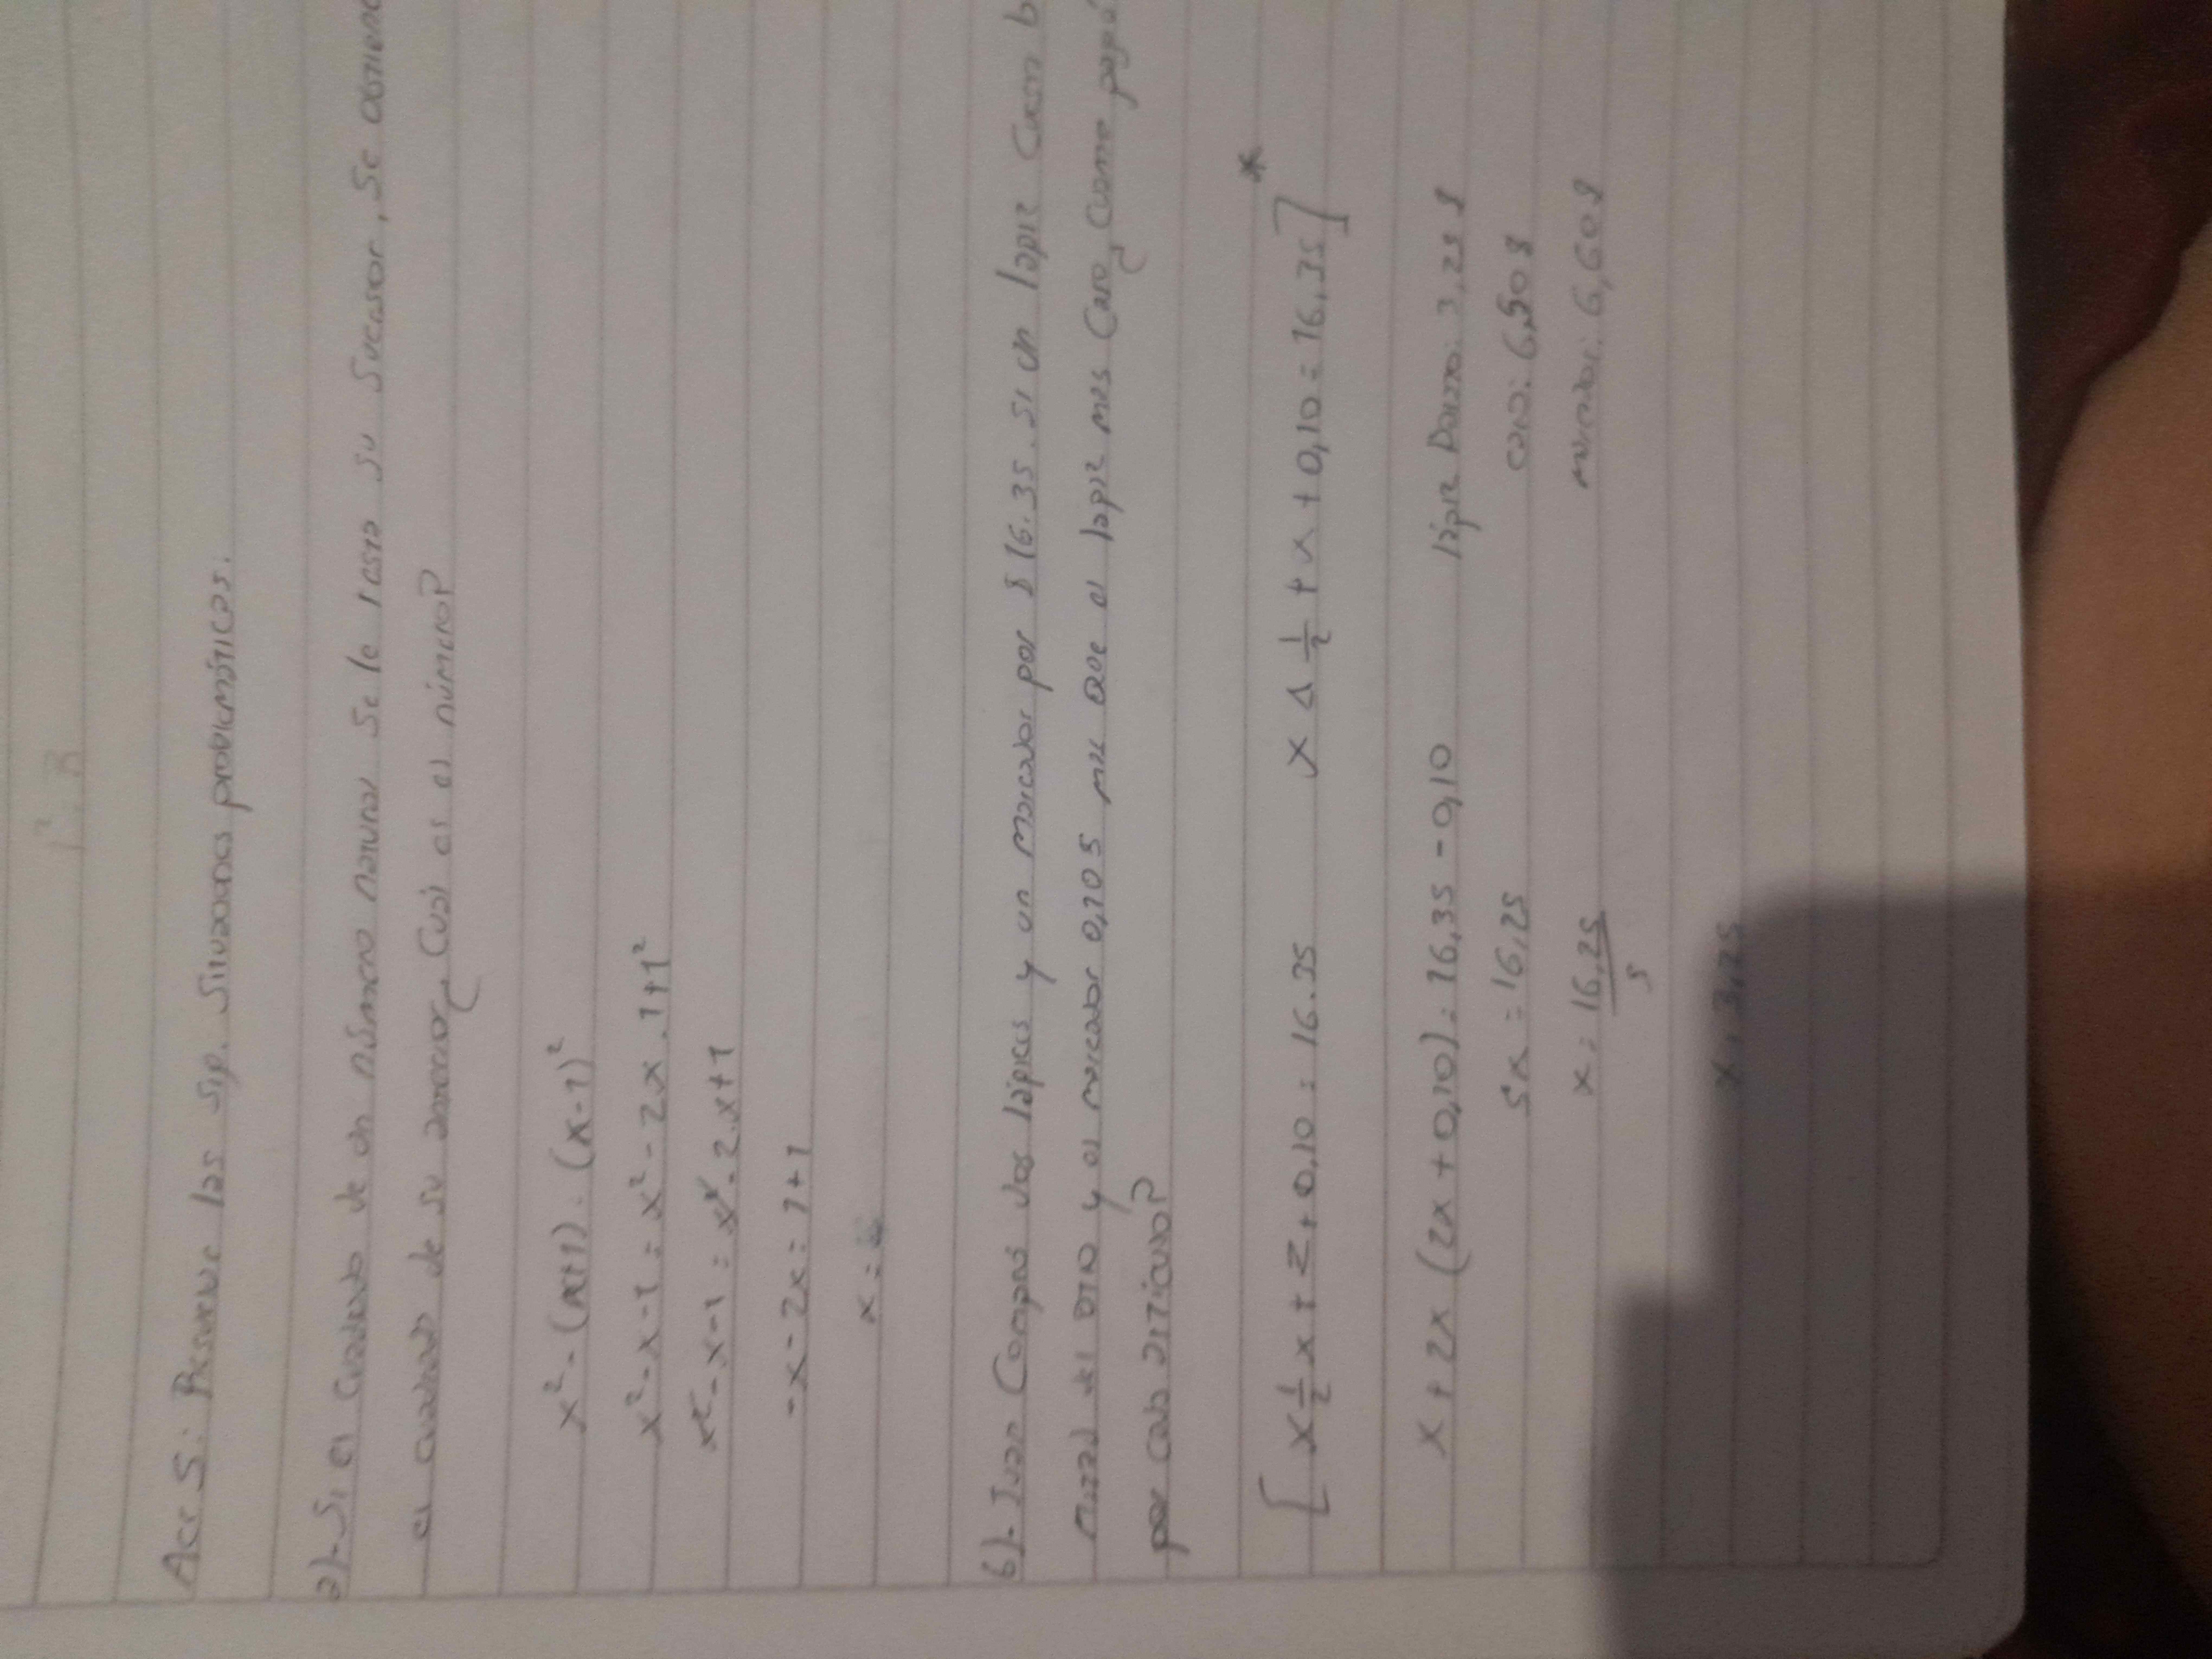 Act 5: Resuelve las sig. Situaciones problemáticas.
a)- Si el cuadrado de un número natural se le resta su sucesor, se obtiene
el cuadrado de su anterior ¿Cuál es el número?
x² - (x+1) = (x-1)²
x² - x - 1 = x² - 2x . 1 + 1²
x² - x - 1 = x² - 2.x + 1
- x - 2x = 1 + 1
x =
b)- Juan Compró dos lápices y un marcador por $ 16.35. Si un lápiz Cuesta
mitad del otro y el marcador 0,10$ más que el lápiz mas Caro ¿Cuánto pagó
por cada artículo?
[ x ½ x + 2 + 0,10 = 16.35 x ½ + x + 0,10 = 16,35 ] *
x + 2x (2x + 0,10) = 16,35 - 0,10
5x = 16,25
x = 16,25
5
x = 3,25
lápiz barato: 3,25 $
caro: 6,50 $
marcador: 6,60 $